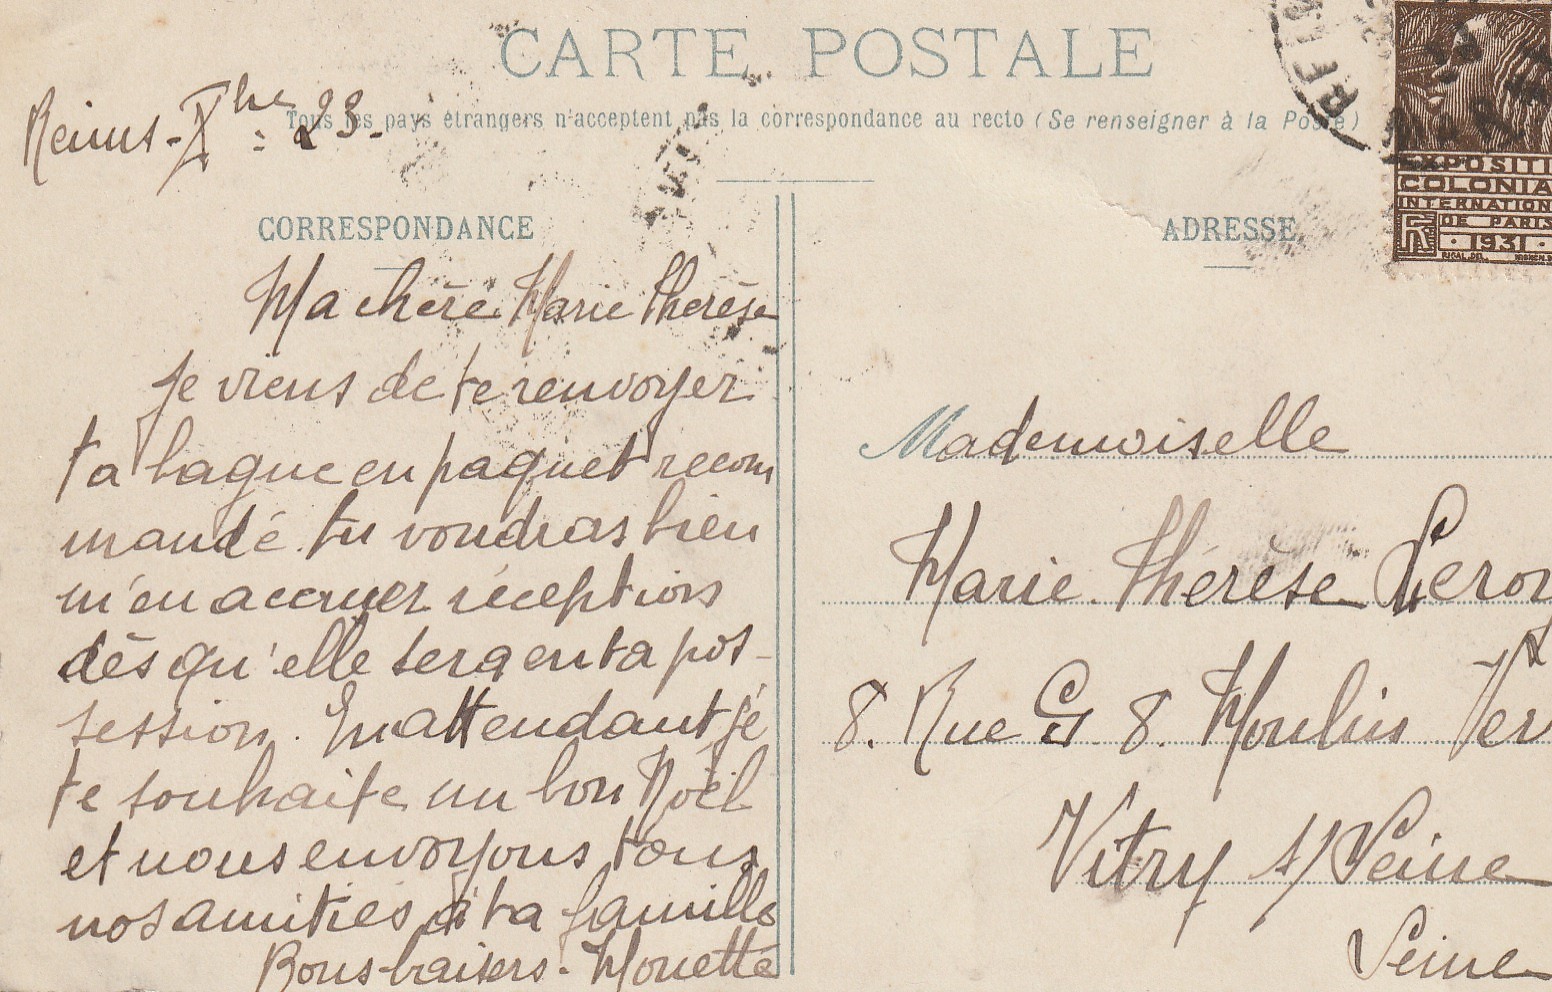 CARTE POSTALE
Tous les pays étrangers n'acceptent pas la correspondance au recto (Se renseigner à la Poste)
Reims - Xbre : 23 -
CORRESPONDANCE
Ma chère Marie Thérèse
je viens de te renvoyer
ta bague en paquet recom
mandé. tu voudras bien
m'en accuser réceptions
dès qu'elle sera en ta pos-
session. En attendant je
te souhaite un bon Noël
et nous envoyons tous
nos amitiés à ta famille
Bons baisers - Mouette
ADRESSE
Mademoiselle
Marie Thérèse Leroy
8. Rue G 8. Moulin Ver
Vitry s/ Seine
Seine
EXPOSITI
COLONIA
INTERNATION
DE PARIS
RF
· 1931 ·
REIM